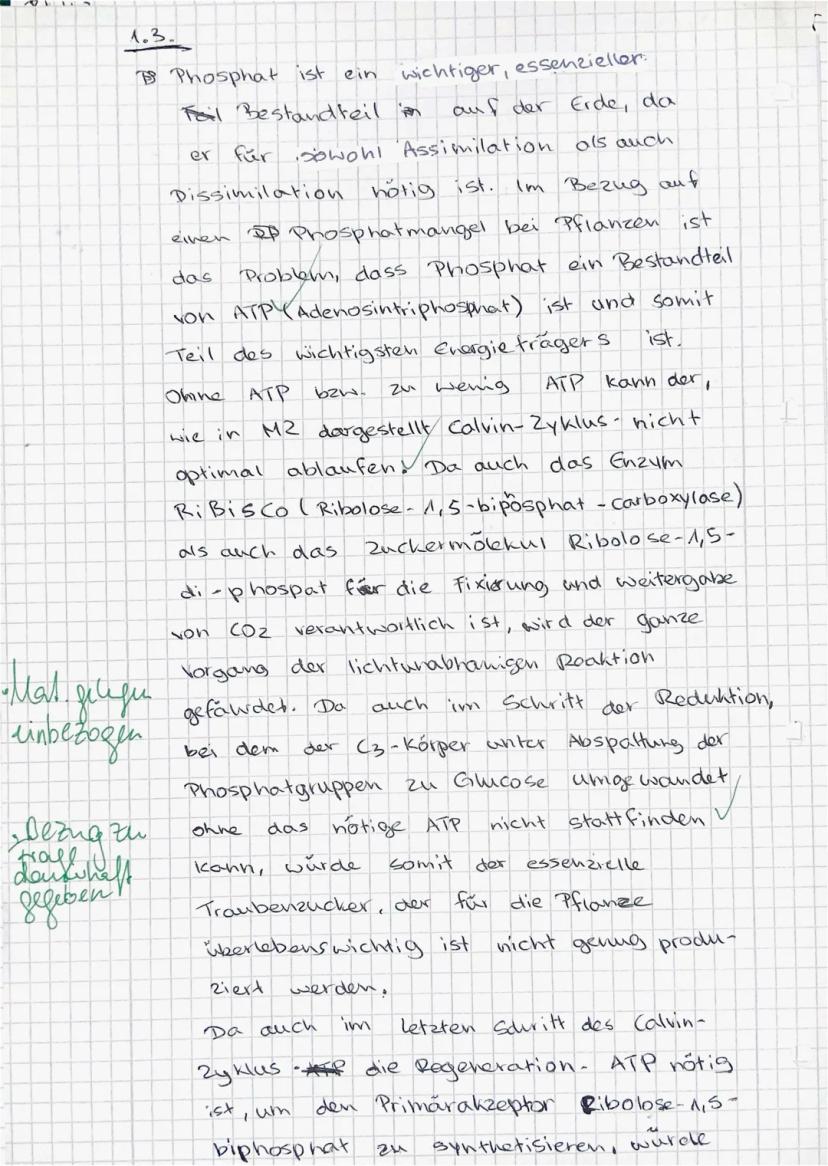 1.3.
Phosphat ist ein wichtiger, essenzieller
Bestandteil auf der Erde, da
er für sowohl Assimilation als auch
Dissimilation nötig ist. Im Bezug auf
einen Phosphatmangel bei Pflanzen ist
das Problem, dass Phosphat ein Bestandteil
von ATP (Adenosintriphosphat) ist und somit
Teil des wichtigsten Energieträgers ist.
Ohne ATP bzw. zu wenig ATP kann der,
wie in M2 dargestellt Calvin-Zyklus- nicht
optimal ablaufen. Da auch das Enzym
RiBisCo (Ribolose-1,5-biposphat-carboxylase)
als auch das Zuckermolekul Ribolose-1,5-
di-phospat für die Fixierung und weitergabe
von CO2 verantwortlich ist, wird der ganze
Vorgang der lichtunabhänigen Reaktion
gefäwdet. Da auch im Schritt der Reduktion,
Mat. gelegen
einbezogen
bei dem der C3-Körper unter Abspaltung der
Phosphatgruppen zu Glucose umgewandet
ohne das nötige ATP nicht stattfinden
Bezug zu
gegeben
kann, würde somit der essenzielle
Traubenzucker, der für die Pflanze
überlebenswichtig ist nicht genug produ-
ziert werden.
Da auch im letzten Schritt des Calvin-
Zyklus die Regeneration- ATP nötig
ist, um den Primärakzeptor Ribolose-1,5-
biphosphat zu synthetisieren, würde